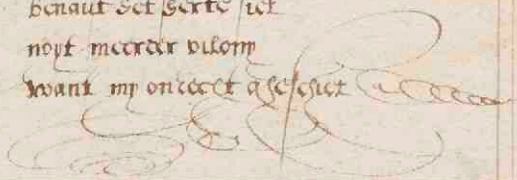 benaut det herte siet
noyt meerder vilony
want my onrecht gheschiet